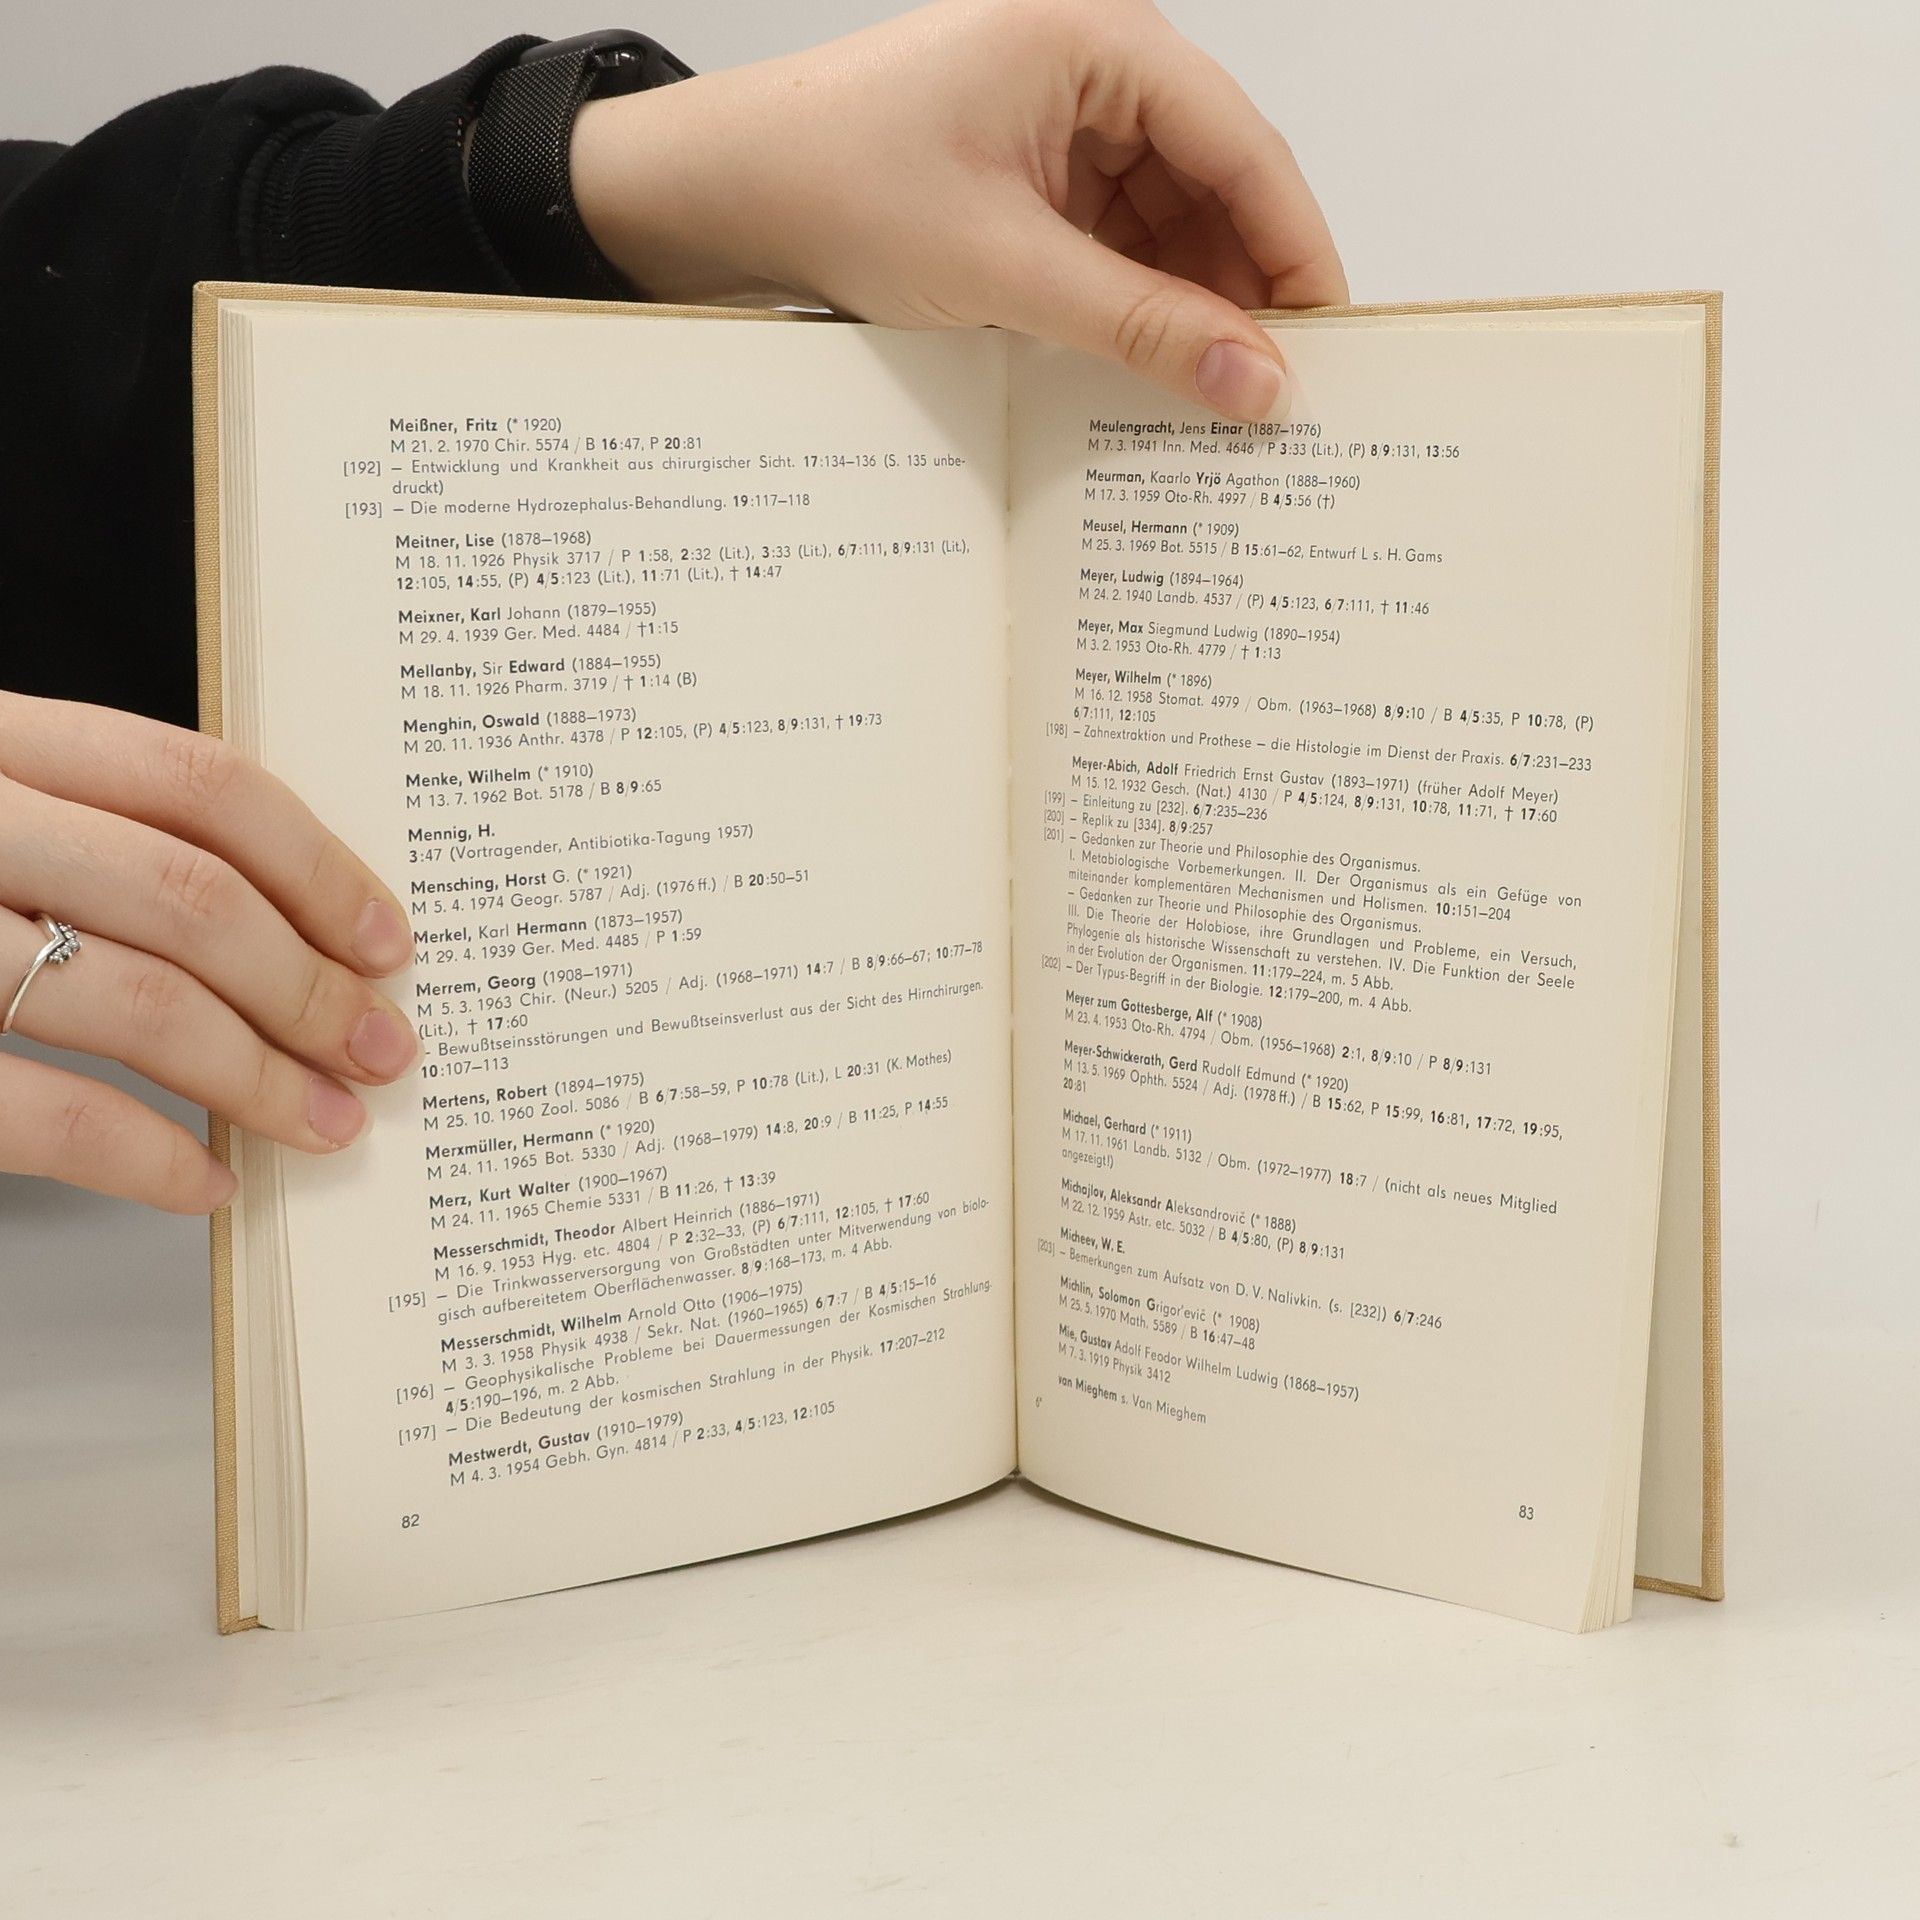 Meißner, Fritz (* 1920)
M 21. 2. 1970 Chir. 5574 / B 16:47, P 20:81
[192] – Entwicklung und Krankheit aus chirurgischer Sicht. 17:134–136 (S. 135 unbe-
druckt)
[193] – Die moderne Hydrozephalus-Behandlung. 19:117–118
Meitner, Lise (1878–1968)
M 18. 11. 1926 Physik 3717 / P 1:58, 2:32 (Lit.), 3:33 (Lit.), 6/7:111, 8/9:131 (Lit.),
12:105, 14:55, (P) 4/5:123 (Lit.), 11:71 (Lit.), † 14:47
Meixner, Karl Johann (1879–1955)
M 29. 4. 1939 Ger. Med. 4484 / †1:15
Mellanby, Sir Edward (1884–1955)
M 18. 11. 1926 Pharm. 3719 / † 1:14 (B)
Menghin, Oswald (1888–1973)
M 20. 11. 1936 Anthr. 4378 / P 12:105, (P) 4/5:123, 8/9:131, † 19:73
Menke, Wilhelm (* 1910)
M 13. 7. 1962 Bot. 5178 / B 8/9:65
Mennig, H.
3:47 (Vortragender, Antibiotika-Tagung 1957)
Mensching, Horst G. (* 1921)
M 5. 4. 1974 Geogr. 5787 / Adj. (1976 ff.) / B 20:50–51
Merkel, Karl Hermann (1873–1957)
M 29. 4. 1939 Ger. Med. 4485 / P 1:59
Merrem, Georg (1908–1971)
M 5. 3. 1963 Chir. (Neur.) 5205 / Adj. (1968–1971) 14:7 / B 8/9:66–67; 10:77–78
(Lit.), † 17:60
– Bewußtseinsstörungen und Bewußtseinsverlust aus der Sicht des Hirnchirurgen.
10:107–113
Mertens, Robert (1894–1975)
M 25. 10. 1960 Zool. 5086 / B 6/7:58–59, P 10:78 (Lit.), L 20:31 (K. Mothes)
Merxmüller, Hermann (* 1920)
M 24. 11. 1965 Bot. 5330 / Adj. (1968–1979) 14:8, 20:9 / B 11:25, P 14:55
Merz, Kurt Walter (1900–1967)
M 24. 11. 1965 Chemie 5331 / B 11:26, † 13:39
Messerschmidt, Theodor Albert Heinrich (1886–1971)
M 16. 9. 1953 Hyg. etc. 4804 / P 2:32–33, (P) 6/7:111, 12:105, † 17:60
[195] – Die Trinkwasserversorgung von Großstädten unter Mitverwendung von biolo-
gisch aufbereitetem Oberflächenwasser. 8/9:168–173, m. 4 Abb.
Messerschmidt, Wilhelm Arnold Otto (1906–1975)
M 3. 3. 1958 Physik 4938 / Sekr. Nat. (1960–1965) 6/7:7 / B 4/5:15–16
[196] – Geophysikalische Probleme bei Dauermessungen der Kosmischen Strahlung.
4/5:190–196, m. 2 Abb.
[197] – Die Bedeutung der kosmischen Strahlung in der Physik. 17:207–212
Mestwerdt, Gustav (1910–1979)
M 4. 3. 1954 Gebh. Gyn. 4814 / P 2:33, 4/5:123, 12:105
82
Meulengracht, Jens Einar (1887–1976)
M 7. 3. 1941 Inn. Med. 4646 / P 3:33 (Lit.), (P) 8/9:131, 13:56
Meurman, Kaarlo Yrjö Agathon (1888–1960)
M 17. 3. 1959 Oto-Rh. 4997 / B 4/5:56 (†)
Meusel, Hermann (* 1909)
M 25. 3. 1969 Bot. 5515 / B 15:61–62, Entwurf L s. H. Gams
Meyer, Ludwig (1894–1964)
M 24. 2. 1940 Landb. 4537 / (P) 4/5:123, 6/7:111, † 11:46
Meyer, Max Siegmund Ludwig (1890–1954)
M 3. 2. 1953 Oto-Rh. 4779 / † 1:13
Meyer, Wilhelm (* 1896)
M 16. 12. 1958 Stomat. 4979 / Obm. (1963–1968) 8/9:10 / B 4/5:35, P 10:78, (P)
6/7:111, 12:105
[198] – Zahnextraktion und Prothese – die Histologie im Dienst der Praxis. 6/7:231–233
Meyer-Abich, Adolf Friedrich Ernst Gustav (1893–1971) (früher Adolf Meyer)
M 15. 12. 1932 Gesch. (Nat.) 4130 / P 4/5:124, 8/9:131, 10:78, 11:71, † 17:60
[199] – Einleitung zu [232]. 6/7:235–236
[200] – Replik zu [334]. 8/9:257
[201] – Gedanken zur Theorie und Philosophie des Organismus.
I. Metabiologische Vorbemerkungen. II. Der Organismus als ein Gefüge von
miteinander komplementären Mechanismen und Holismen. 10:151–204
– Gedanken zur Theorie und Philosophie des Organismus.
III. Die Theorie der Holobiose, ihre Grundlagen und Probleme, ein Versuch,
Phylogenie als historische Wissenschaft zu verstehen. IV. Die Funktion der Seele
in der Evolution der Organismen. 11:179–224, m. 5 Abb.
[202] – Der Typus-Begriff in der Biologie. 12:179–200, m. 4 Abb.
Meyer zum Gottesberge, Alf (* 1908)
M 23. 4. 1953 Oto-Rh. 4794 / Obm. (1956–1968) 2:1, 8/9:10 / P 8/9:131
Meyer-Schwickerath, Gerd Rudolf Edmund (* 1920)
M 13. 5. 1969 Ophth. 5524 / Adj. (1978 ff.) / B 15:62, P 15:99, 16:81, 17:72, 19:95,
20:81
Michael, Gerhard (* 1911)
M 17. 11. 1961 Landb. 5132 / Obm. (1972–1977) 18:7 / (nicht als neues Mitglied
angezeigt!)
Michajlov, Aleksandr Aleksandrovič (* 1888)
M 22. 12. 1959 Astr. etc. 5032 / B 4/5:80, (P) 8/9:131
Micheev, W. E.
[203] – Bemerkungen zum Aufsatz von D. V. Nalivkin. (s. [232]) 6/7:246
Michlin, Solomon Grigor'evič (* 1908)
M 25. 5. 1970 Math. 5589 / B 16:47–48
Mie, Gustav Adolf Feodor Wilhelm Ludwig (1868–1957)
M 7. 3. 1919 Physik 3412
van Mieghem s. Van Mieghem
6*
83